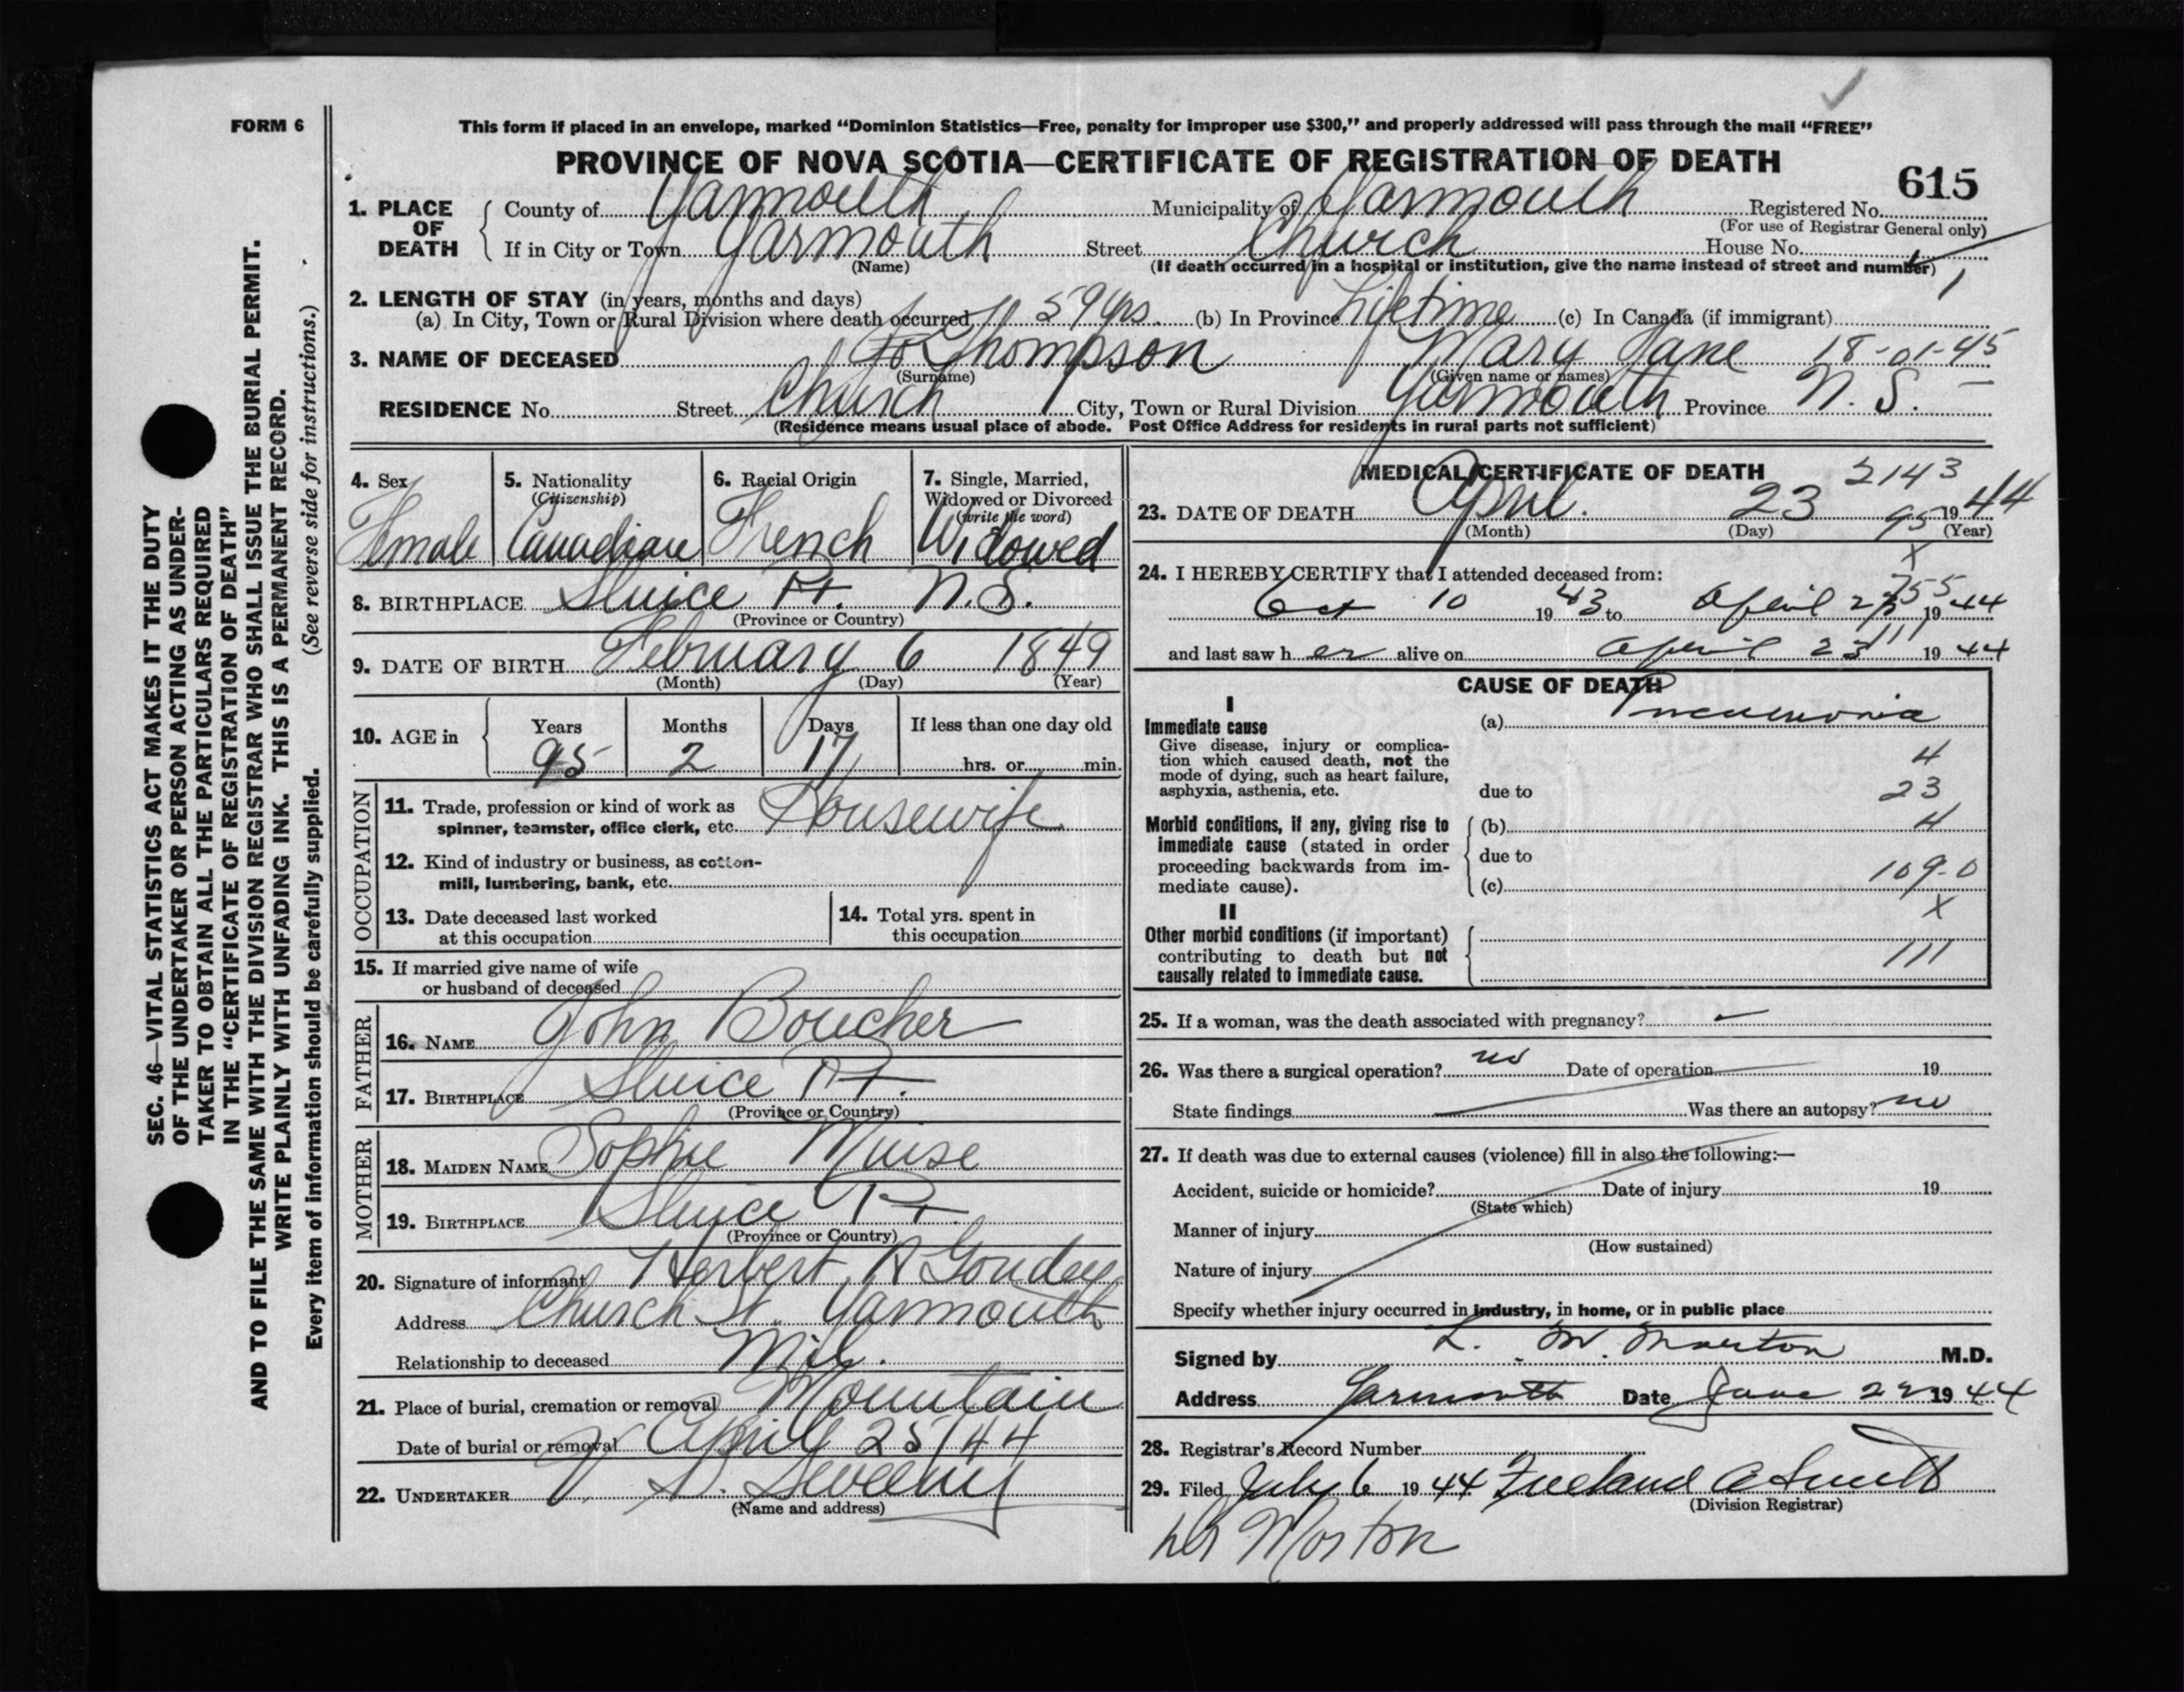 FORM 6
This form if placed in an envelope, marked "Dominion Statistics—Free, penalty for improper use $300," and properly addressed will pass through the mail "FREE"
PROVINCE OF NOVA SCOTIA—CERTIFICATE OF REGISTRATION OF DEATH
615
1. PLACE OF DEATH
County of Yarmouth Municipality of Yarmouth Registered No.
(For use of Registrar General only)
If in City or Town Yarmouth Street Church House No.
(Name)
(If death occurred in a hospital or institution, give the name instead of street and number)
2. LENGTH OF STAY (in years, months and days)
(a) In City, Town or Rural Division where death occurred 59 yrs. (b) In Province Lifetime (c) In Canada (if immigrant)
3. NAME OF DECEASED Thompson Mary Jane 18-01-45
(Surname) (Given name or names)
RESIDENCE No. Street Church City, Town or Rural Division Yarmouth Province N. S.
(Residence means usual place of abode. Post Office Address for residents in rural parts not sufficient)
4. Sex
Female
5. Nationality
(Citizenship)
Canadian
6. Racial Origin
French
7. Single, Married,
Widowed or Divorced
(write the word)
Widowed
8. BIRTHPLACE Sluice Pt. N.S.
(Province or Country)
9. DATE OF BIRTH February 6 1849
(Month) (Day) (Year)
10. AGE in
Years Months Days If less than one day old
95 2 17 hrs. or min.
OCCUPATION
11. Trade, profession or kind of work as
spinner, teamster, office clerk, etc. Housewife
12. Kind of industry or business, as cotton-
mill, lumbering, bank, etc.
13. Date deceased last worked
at this occupation
14. Total yrs. spent in
this occupation
15. If married give name of wife
or husband of deceased
FATHER
16. NAME John Boucher
17. BIRTHPLACE Sluice Pt.
(Province or Country)
MOTHER
18. MAIDEN NAME Sophie Muise
19. BIRTHPLACE Sluice Pt.
(Province or Country)
20. Signature of informant Herbert A Goudey
Address Church St. Yarmouth
Relationship to deceased
21. Place of burial, cremation or removal Mountain
Date of burial or removal April 25/44
22. UNDERTAKER V. S. Sweeny
(Name and address)
MEDICAL CERTIFICATE OF DEATH
2143
23. DATE OF DEATH April. 23 1944
95
(Month) (Day) (Year)
X
24. I HEREBY CERTIFY that I attended deceased from:
755
Oct 10 1943 to April 23 1944
111
and last saw her alive on April 23 1944
CAUSE OF DEATH
I
Immediate cause
Give disease, injury or complica-
tion which caused death, not the
mode of dying, such as heart failure,
asphyxia, asthenia, etc.
(a) Pneumonia
4
due to 23
Morbid conditions, if any, giving rise to
immediate cause (stated in order
proceeding backwards from im-
mediate cause).
(b) 4
due to
(c) 109-0
X
II
Other morbid conditions (if important)
contributing to death but not
causally related to immediate cause.
111
25. If a woman, was the death associated with pregnancy? —
26. Was there a surgical operation? no Date of operation 19
State findings Was there an autopsy? no
27. If death was due to external causes (violence) fill in also the following:—
Accident, suicide or homicide? Date of injury 19
(State which)
Manner of injury
(How sustained)
Nature of injury
Specify whether injury occurred in industry, in home, or in public place
Signed by L. M. Morton M.D.
Address Yarmouth Date June 22 1944
28. Registrar's Record Number
29. Filed July 6 1944 Freeland A Smith
(Division Registrar)
Dr Morton
SEC. 46—VITAL STATISTICS ACT MAKES IT THE DUTY
OF THE UNDERTAKER OR PERSON ACTING AS UNDER-
TAKER TO OBTAIN ALL THE PARTICULARS REQUIRED
IN THE "CERTIFICATE OF REGISTRATION OF DEATH"
AND TO FILE THE SAME WITH THE DIVISION REGISTRAR WHO SHALL ISSUE THE BURIAL PERMIT.
WRITE PLAINLY WITH UNFADING INK. THIS IS A PERMANENT RECORD.
Every item of information should be carefully supplied. (See reverse side for instructions.)